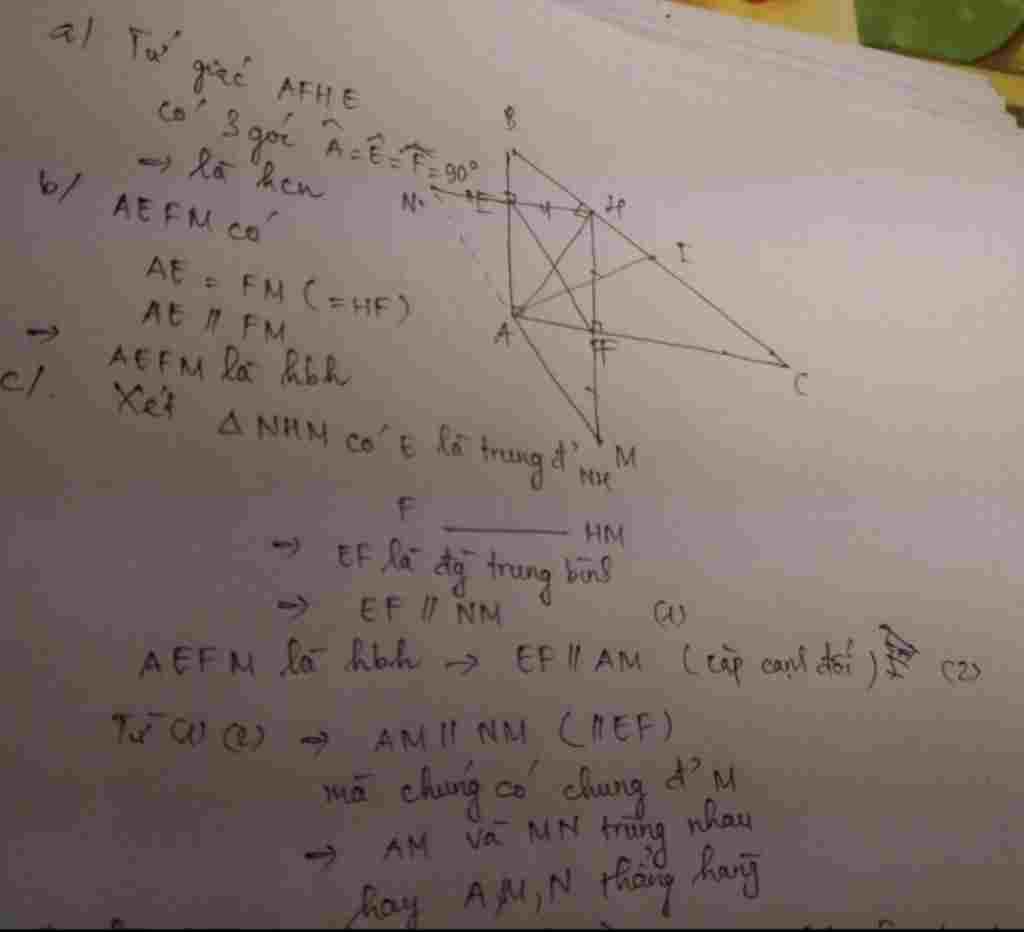 a/ Tứ giác AFHE
có 3 góc Â = Ê = F̂ = 90°
→ là hcn
b/ AEFM có
AE = FM (=HF)
AE // FM
→ AEFM là hbh
c/. Xét Δ NHM có E là trung đ' NH
F —— HM
→ EF là đg trung bình
→ EF // NM (1)
AEFM là hbh → EF // AM (cặp cạnh đối) (2)
Từ (1) (2) → AM // NM (// EF)
mà chúng có chung đ' M
→ AM và MN trùng nhau
hay A, M, N thẳng hàng
B
N
E
H
I
A
F
C
M